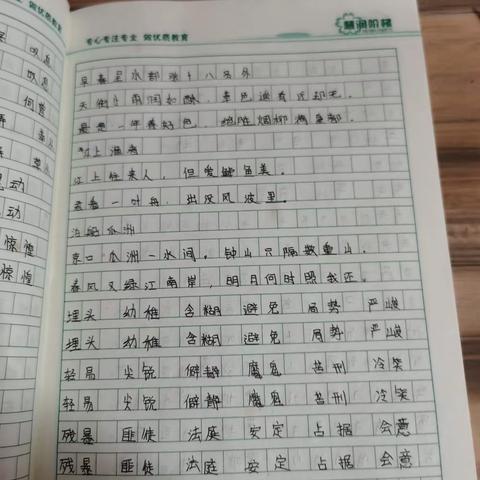 专心专注专业 做优质教育
慧润阶梯
叹息
叹息
何曾
惊惶
惊惶
早春呈水部张十八员外
天街小雨润如酥，草色遥看近却无。
最是一年春好处，绝胜烟柳满皇都。
江上渔者
江上往来人，但爱鲈鱼美。
君看一叶舟，出没风波里。
泊船瓜洲
京口瓜洲一水间，钟山只隔数重山。
春风又绿江南岸，明月何时照我还。
埋头 幼稚 含糊 避免 局势 严峻
埋头 幼稚 含糊 避免 局势 严峻
轻易 尖锐 僻静 魔鬼 苦刑 冷笑
轻易 尖锐 僻静 魔鬼 苦刑 冷笑
残暴 匪徒 法庭 安定 占据 会意
残暴 匪徒 法庭 安定 占据 会意